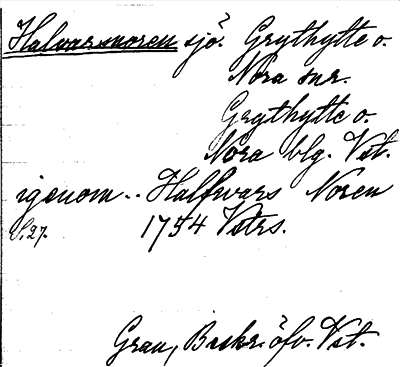 Halvarsnoren sjö. Grythytte o.
Nora snr.
Grythytte o.
Nora blg. Vst.
igenom.. Halfwars Noren
S.27. 1754 Vstrs.
Grau, Beskr. öfv. Vst.